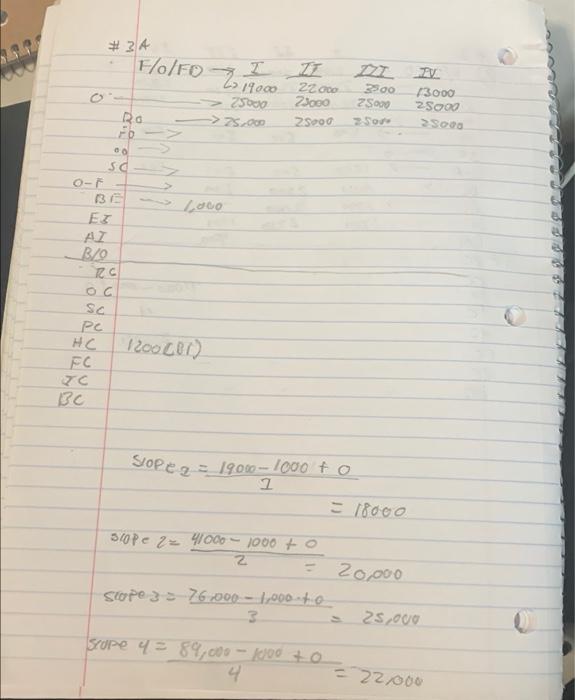 # 3A
F/O/FD → I II III IV
↳ 19000 22000 3500 13000
O → 25000 25000 25000 25000
RO → 25,000 25000 25000 25000
FD →
OO →
SC →
O-F →
BI → 1,000
EI
AI
B/O
RC
OC
SC
PC
HC 1200(BI)
FC
IC
BC
Slope 1 = 19000 - 1000 + 0
1
= 18000
slope 2 = 41000 - 1000 + 0
2
= 20,000
slope 3 = 76,000 - 1,000 + 0
3
= 25,000
slope 4 = 89,000 - 1000 + 0
4
= 22,000